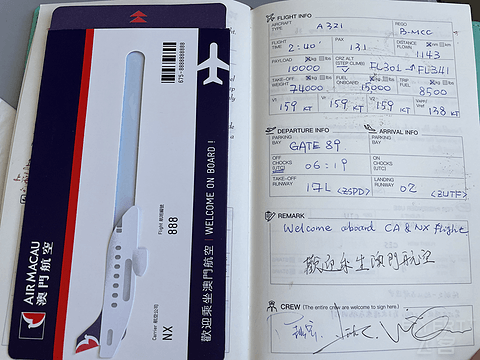 AIR MACAU
澳門航空
675-8888888888
Flight 航班編號
888
Carrier 航空公司
NX
歡迎乘坐澳門航空 | WELCOME ON BOARD!
FLIGHT INFO
AIRCRAFT TYPE A321 REGO B-MCC
FLIGHT TIME 2:40' PAX 131 DISTANCE FLOWN km nm 1143
PAYLOAD kg lb 10000 CRZ ALT (STEP CLIMB) FL301 → FL341
TAKE-OFF WEIGHT kg lb 74000 FUEL ONBOARD kg lb 15000 TRIP FUEL kg lb 8500
V1 159 KT VR 159 KT V2 159 KT VAPP/Vref 138 KT
DEPARTURE INFO ARRIVAL INFO
PARKING BAY GATE 89 PARKING BAY
OFF CHOCKS (UTC) 06:19 ON CHOCKS (UTC)
TAKE-OFF RUNWAY 17L <ZSPD> LANDING RUNWAY 02 <ZUTF>
REMARK
Welcome aboard CA & NX flight
歡迎乘坐澳門航空
CREW (The entire crew are welcome to sign here.)